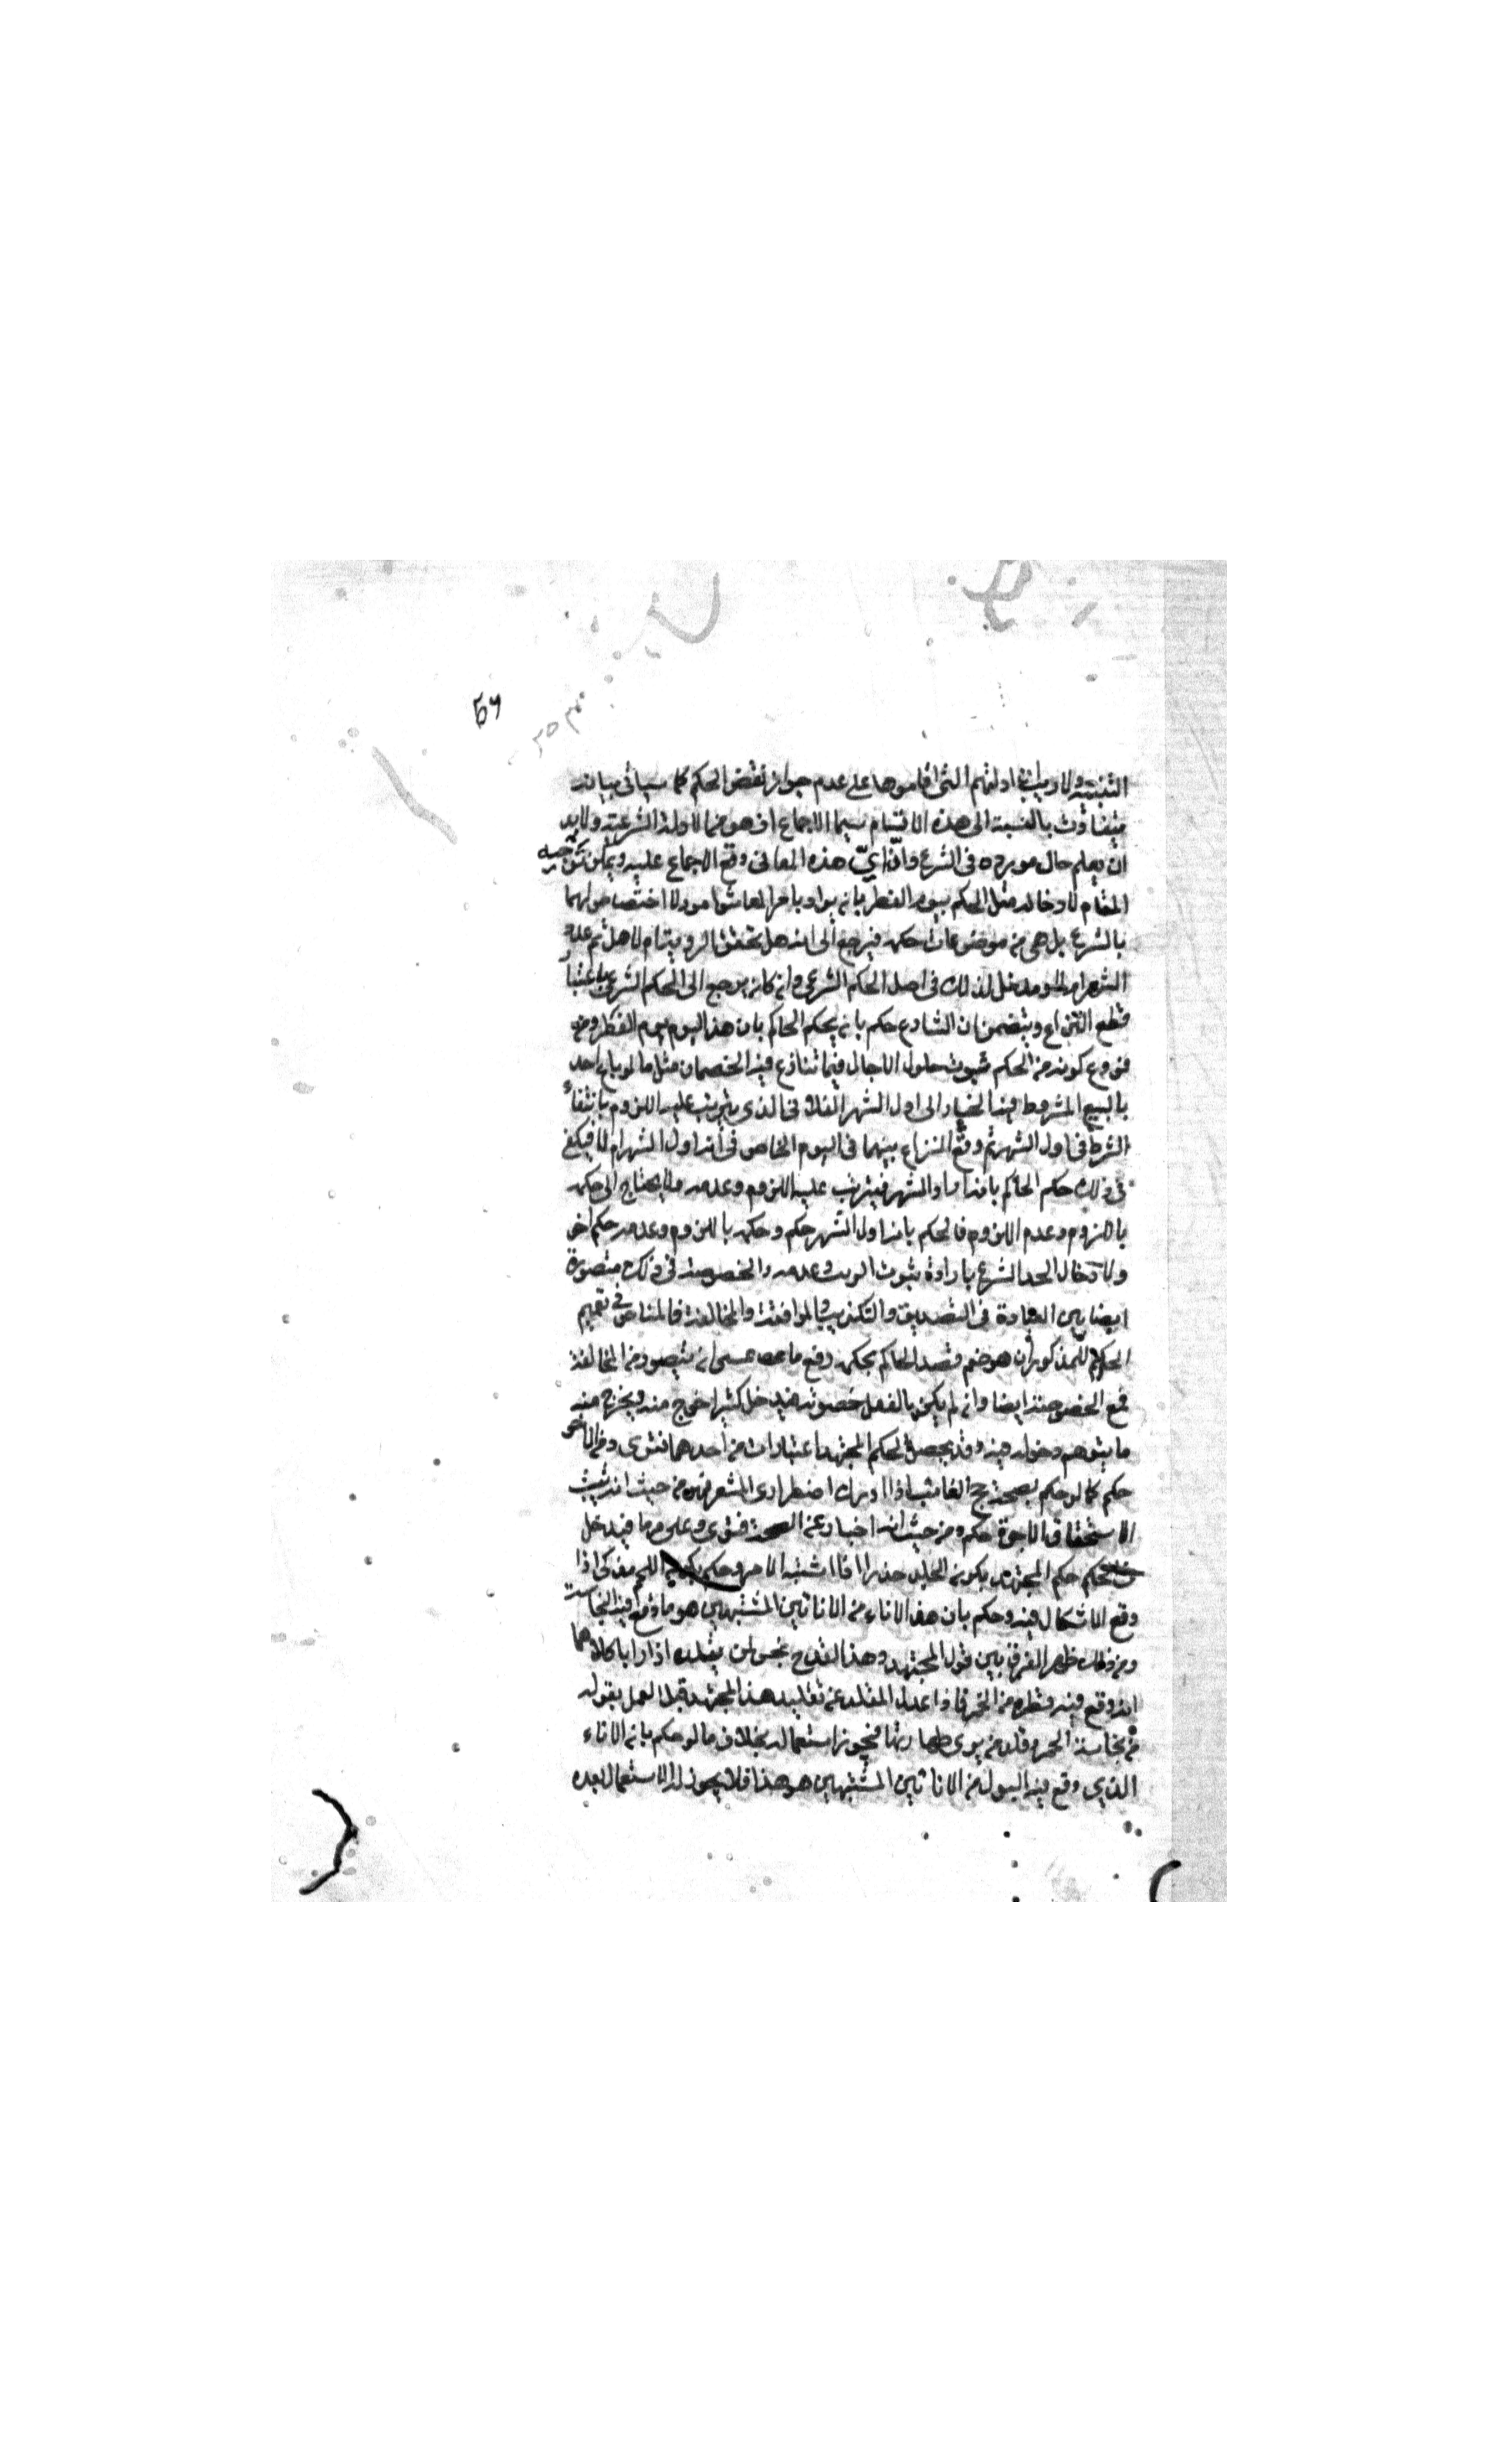 ٥٦
الثبتية ولا ريب ان ادلتهم التى اقاموها على عدم جواز نقض الحكم كما سيأتى بيانه
متفاوت بالنسبة الى هذه الاقسام سيما الاجماع اذ هو من الادلة الشرعية ولا بد
ان يعلم حال مورده فى الشرع وان اىّ هذه المعانى وقع الاجماع عليه ويمكن توجيه
المقام لادخال مثل الحكم بيوم الفطر بانه يوم او بامر المعاش امور لا اختصاص لهما
بالشرع بل هى من موضوعات حكمه فيرجع الى انه هل تحقق الروية ام لا هل تم عدة
الشهر ام لا ولا مدخل لذلك فى اصل الحكم الشرعى وانه كان يرجع الى الحكم الشرعى باعتبار
قطع النزاع ويتضمن ان الشارع حكم بانه يحكم الحاكم بان هذا اليوم يوم الفطر ومن
فروع كونه من الحكم ثبوت حلول الاجال فيما تنازع فيه الخصمان مثل ما لو باع احد
بالبيع المشروط فيه الخيار الى اول الشهر الفلانى الذى يترتب عليه اللزوم بانتفاء
الشرط فى اول الشهر ثم وقع النزاع بينهما فى اليوم الخاص فى انه اول الشهر ام لا فيكفى
فى ذلك حكم الحاكم بانه اول الشهر فيترتب عليه اللزوم وعدمه ولا يحتاج الى حكمه
باللزوم وعدم اللزوم فالحكم بانه اول الشهر حكم وحكمه باللزوم وعدمه حكم اخر
ولادخال الحد الشرع بارادة ثبوت الريب وعدمه والخصومة فى ذلك متصورة
ايضا بين العادة فى التصديق والتكذيب والموافقة والمخالفة فالمناص فى تعميم
الحكم للمذكوران هو ضم قصد الحاكم بحكمه رفع ما عسى ان يتصور من المخالفة
فمع الخصومة ايضا وان لم يكن بالفعل خصومة فيدخل كثيرا خرج منه ويخرج منه
ما يتوهم دخوله فيه وقد يحصل لحكم المجتهد اعتبارات من احدهما فتوى ومن الاخر
حكم كما لو حكم بصحة حج الغائب اذا ادرك اضطرارى المشعر فمن حيث انه يثبت
الاستحقاق الاجرة حكم ومن حيث انه اخبار عن الصحة فتوى وعلى هذا فيدخل
فى الحكم حكم المجتهد بكون الجلد اذا اشتبه الامر وحكم بكون اللحم مذكى اذا
وقع الاشكال فيه وحكم بان هذا الاناء من الانائين المشتبهين هو ما وقع فيه النجاسة
ومن ذلك ظهر الفرق بين قول المجتهد وهذا القدح نجس لمن يقلده اذا رايا كلاهما
انه وقع فيه قطرة من الخمر فاذا عدل المقلد عن تقليد هذا المجتهد قبل العمل بقوله
من نجاسة الخمر وقلد من يرى طهارتها فيجوز استعماله بخلاف ما لو حكم بانه الاناء
الذى وقع فيه البول من الانائين المشتبهين هو هذا فلا يجوز له الاستعمال بعده